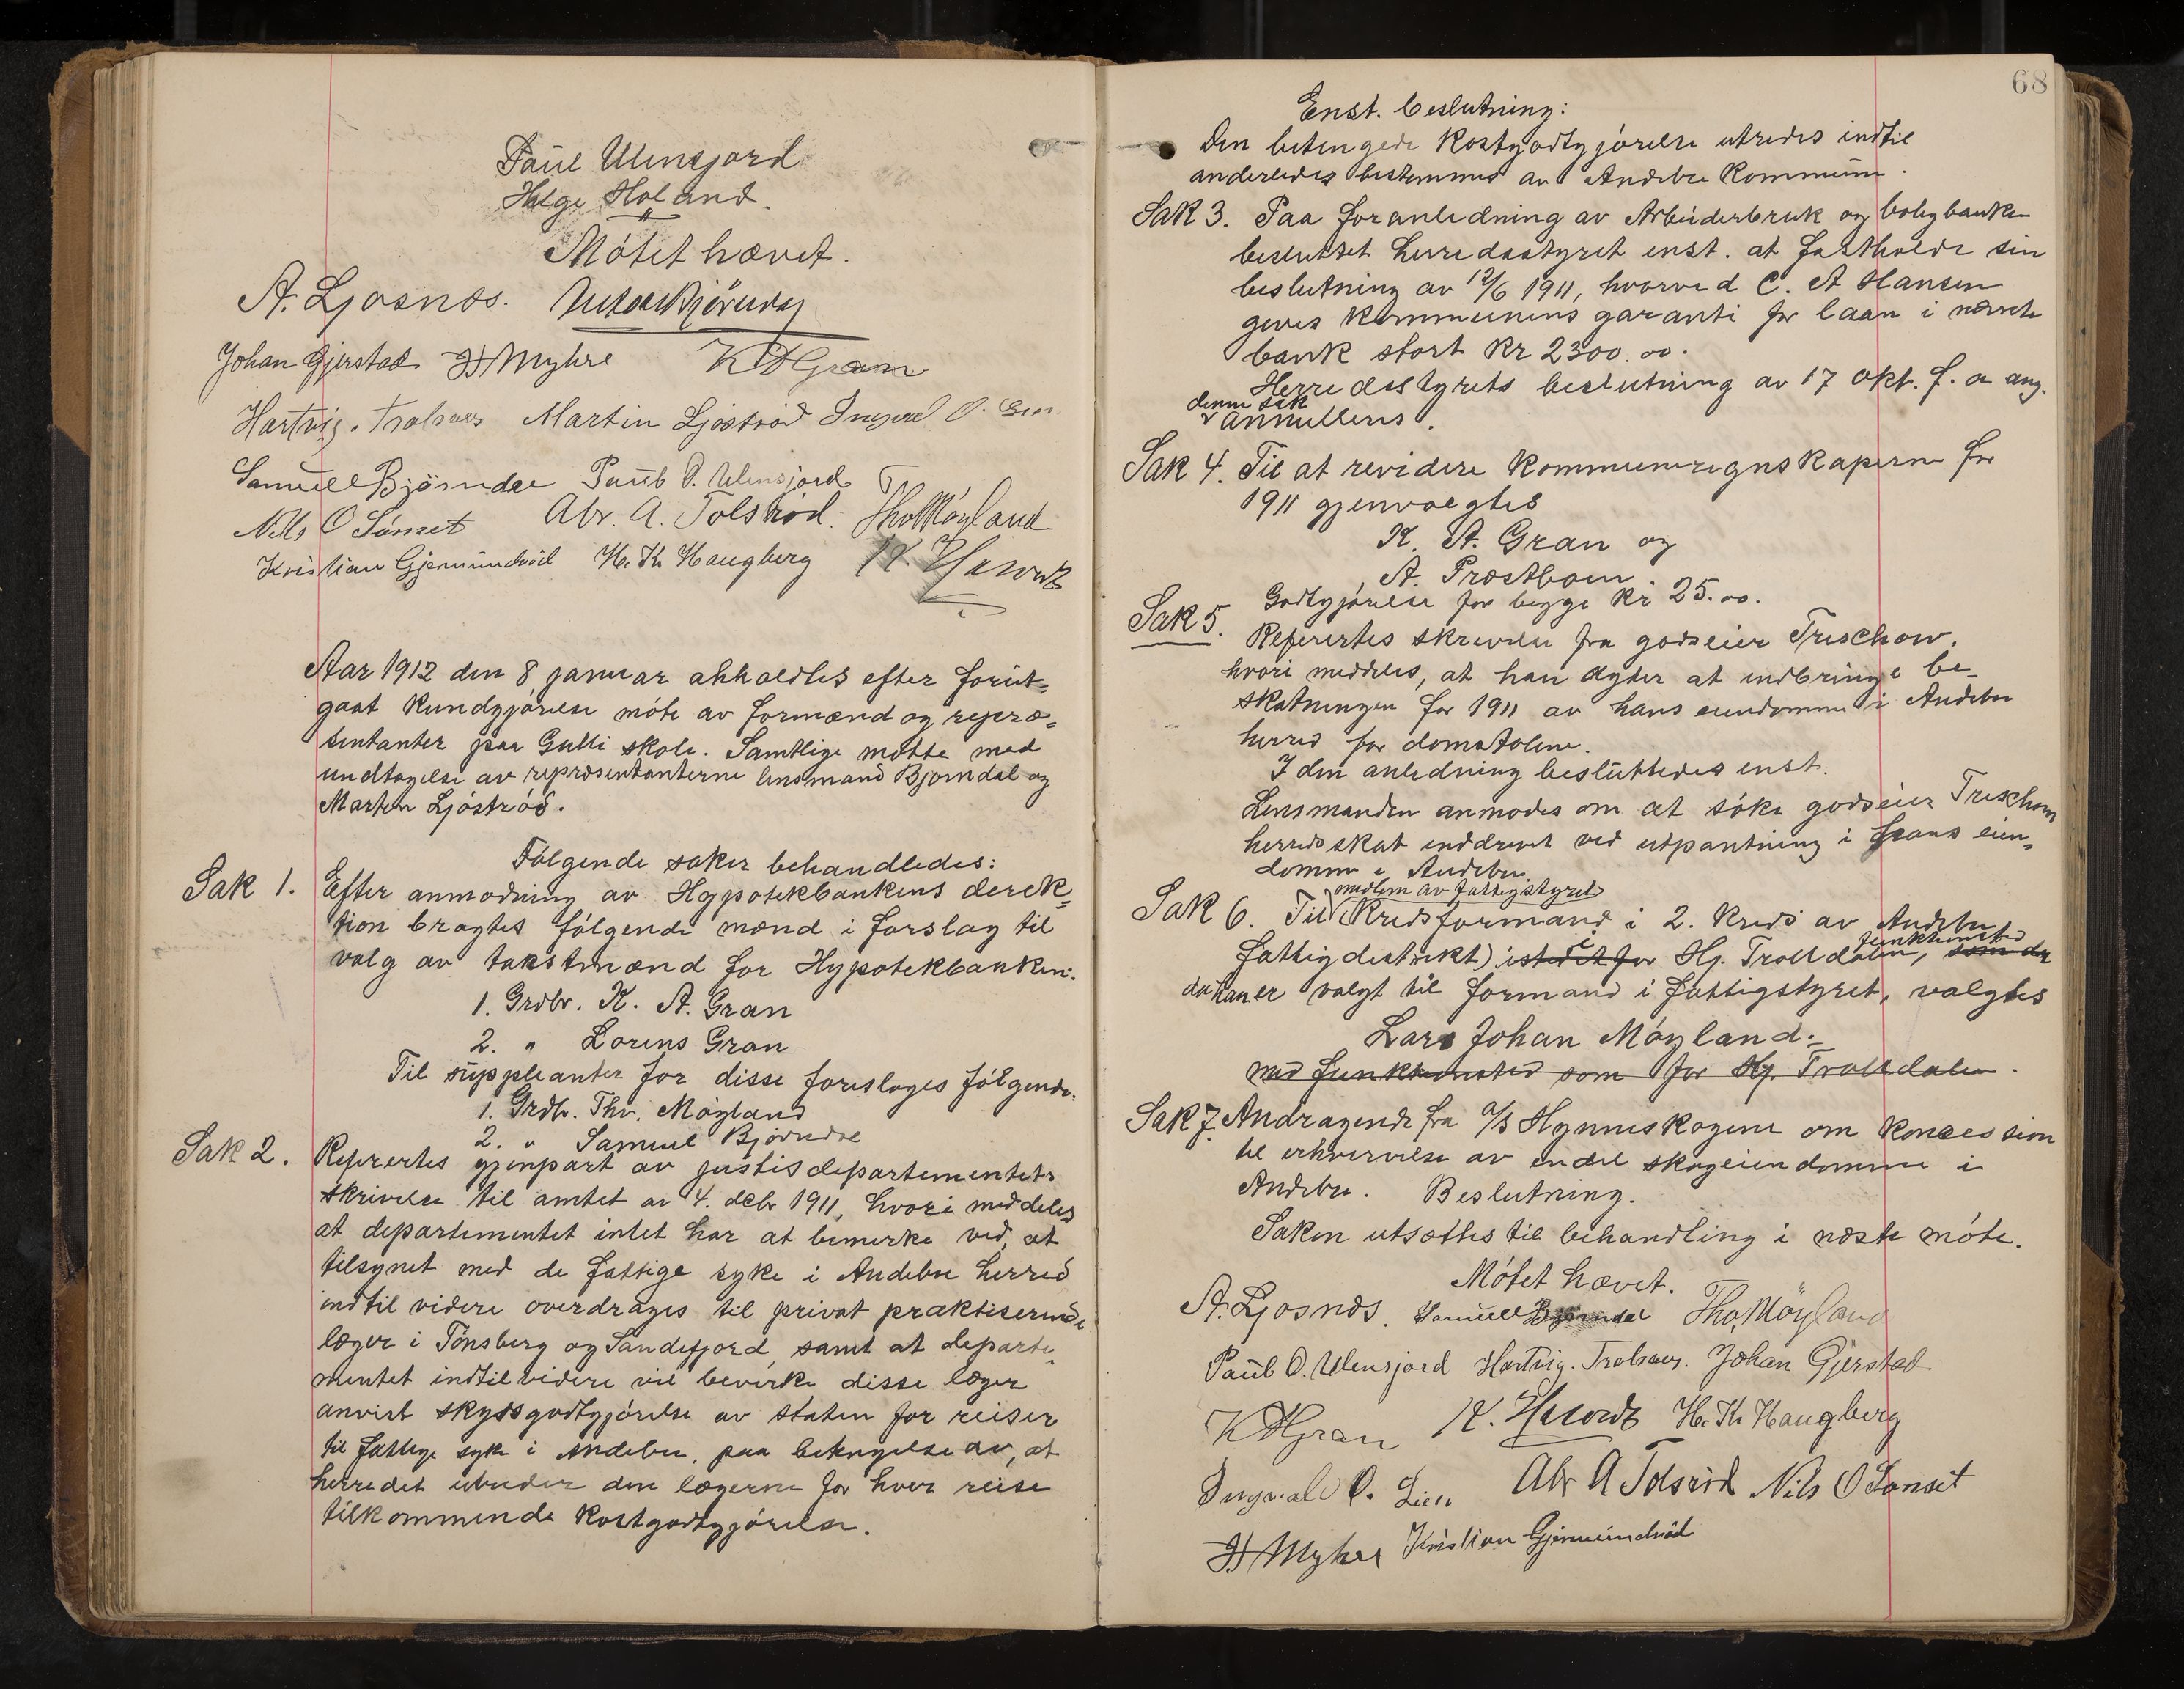 Paul Ulensjord
Helge Holand.
Mötet hævet.
A. Ljosnes.
Johan Gjerstad H Myhre K A Gran
Hartvig. Trolsaas Martin Ljöströd Ingvald O.
Samuel Björndal Paul O. Ulensjord
Nils O Sönset Abr. A. Tolsröd. Tho Möyland
Kristian Gjermundröd H. Kr Haugberg
Aar 1912 den 8 januar ahholdtes efter forut-
gaat kundgjörelse möte av formænd og repræ-
sentanter paa Gulli skole. Samtlige mötte med
undtagelse av repræsentanterne lensmand Bjørndal og
Martin Ljöströd.
Fölgende saker behandledes:
Sak 1. Efter anmodning av Hypotekbankens derek-
tion bragtes fölgende mænd i forslag til
valg av takstmænd for Hypotekbanken:
1. Grdbr. K. A. Gran
2. " Lorens Gran
Til suppleanter for disse foresloges fölgende:
1. Grdbr. Thv. Möyland
2. " Samuel Bjørndal
Sak 2. Referertes gjenpart av justisdepartementets
skrivelse til amtet av 4. debr 1911, hvori meddeles
at departementet intet har at bemerke ved, at
tilsynet med de fattige syke i Andebu herred
indtil videre overdrages til privat praktiserende
læger i Tönsberg og Sandefjord, samt at departe-
mentet indtil videre vil bevirke disse læger
anvist skyssgodtgjörelse av staten for reiser
til fattige syke i Andebu, paa betingelse av, at
herredet utreder den lægerne for hver reise
tilkommende kostgodtgjörelse.
68
Enst. beslutning:
Den betingede kostgodtgjörelse utredes indtil
anderledes bestemmes av Andebu kommune.
Sak 3. Paa foranledning av Arbeiderbruk og boligbanken
besluttet herredsstyret enst. at fastholde sin
beslutning av 12/6 1911, hvorved C. A Hansen
gives kommunens garanti for laan i nævnte
bank stort kr 2300.00.
Herredsstyrets beslutning av 17 okt. f. a ang.
denne sak
annulleres.
Sak 4. Til at revidere kommuneregnskaperne for
1911 gjenvalgtes
K. A. Gran og
A. Præstbøen.
Godtgjörelse for begge kr 25.00.
Sak 5. Referertes skrivelse fra godseier Treschow,
hvori meddeles, at han agter at indbringe be-
skatningen for 1911 av hans eiendomme i Andebu
herred for domstolene.
I den anledning besluttedes enst.
Lensmanden anmodes om at söke godseier Treschows
herredsskat inddrevet ved utpantning i hans eien-
domme i Andebu.
medlem av fattigstyret
Sak 6. Til (Kredsformand i 2. kreds av Andebu
funktionstid
fattigdistrikt) i stedet for Hj. Trolldalen, som da
da han er valgt til formand i fattigstyret, valgtes
Lars Johan Möyland:
med funktionstid som for Hj. Trolldalen.
Sak 7. Andragende fra A/S Hynneskogene om koncession
til erhvervelse av endel skogeiendomme i
Andebu. Beslutning.
Saken utsættes til behandling i næste möte.
Mötet hævet.
A. Ljosnes. Samuel Bjørndal Tho. Möyland
Paul O. Ulensjord Hartvig. Trolsaas. Johan Gjerstad.
K A Gran H. Kr Haugberg
Ingvald O. Lien Abr A Tolsröd Nils O Sönset
H Myhre Kristian Gjermundröd